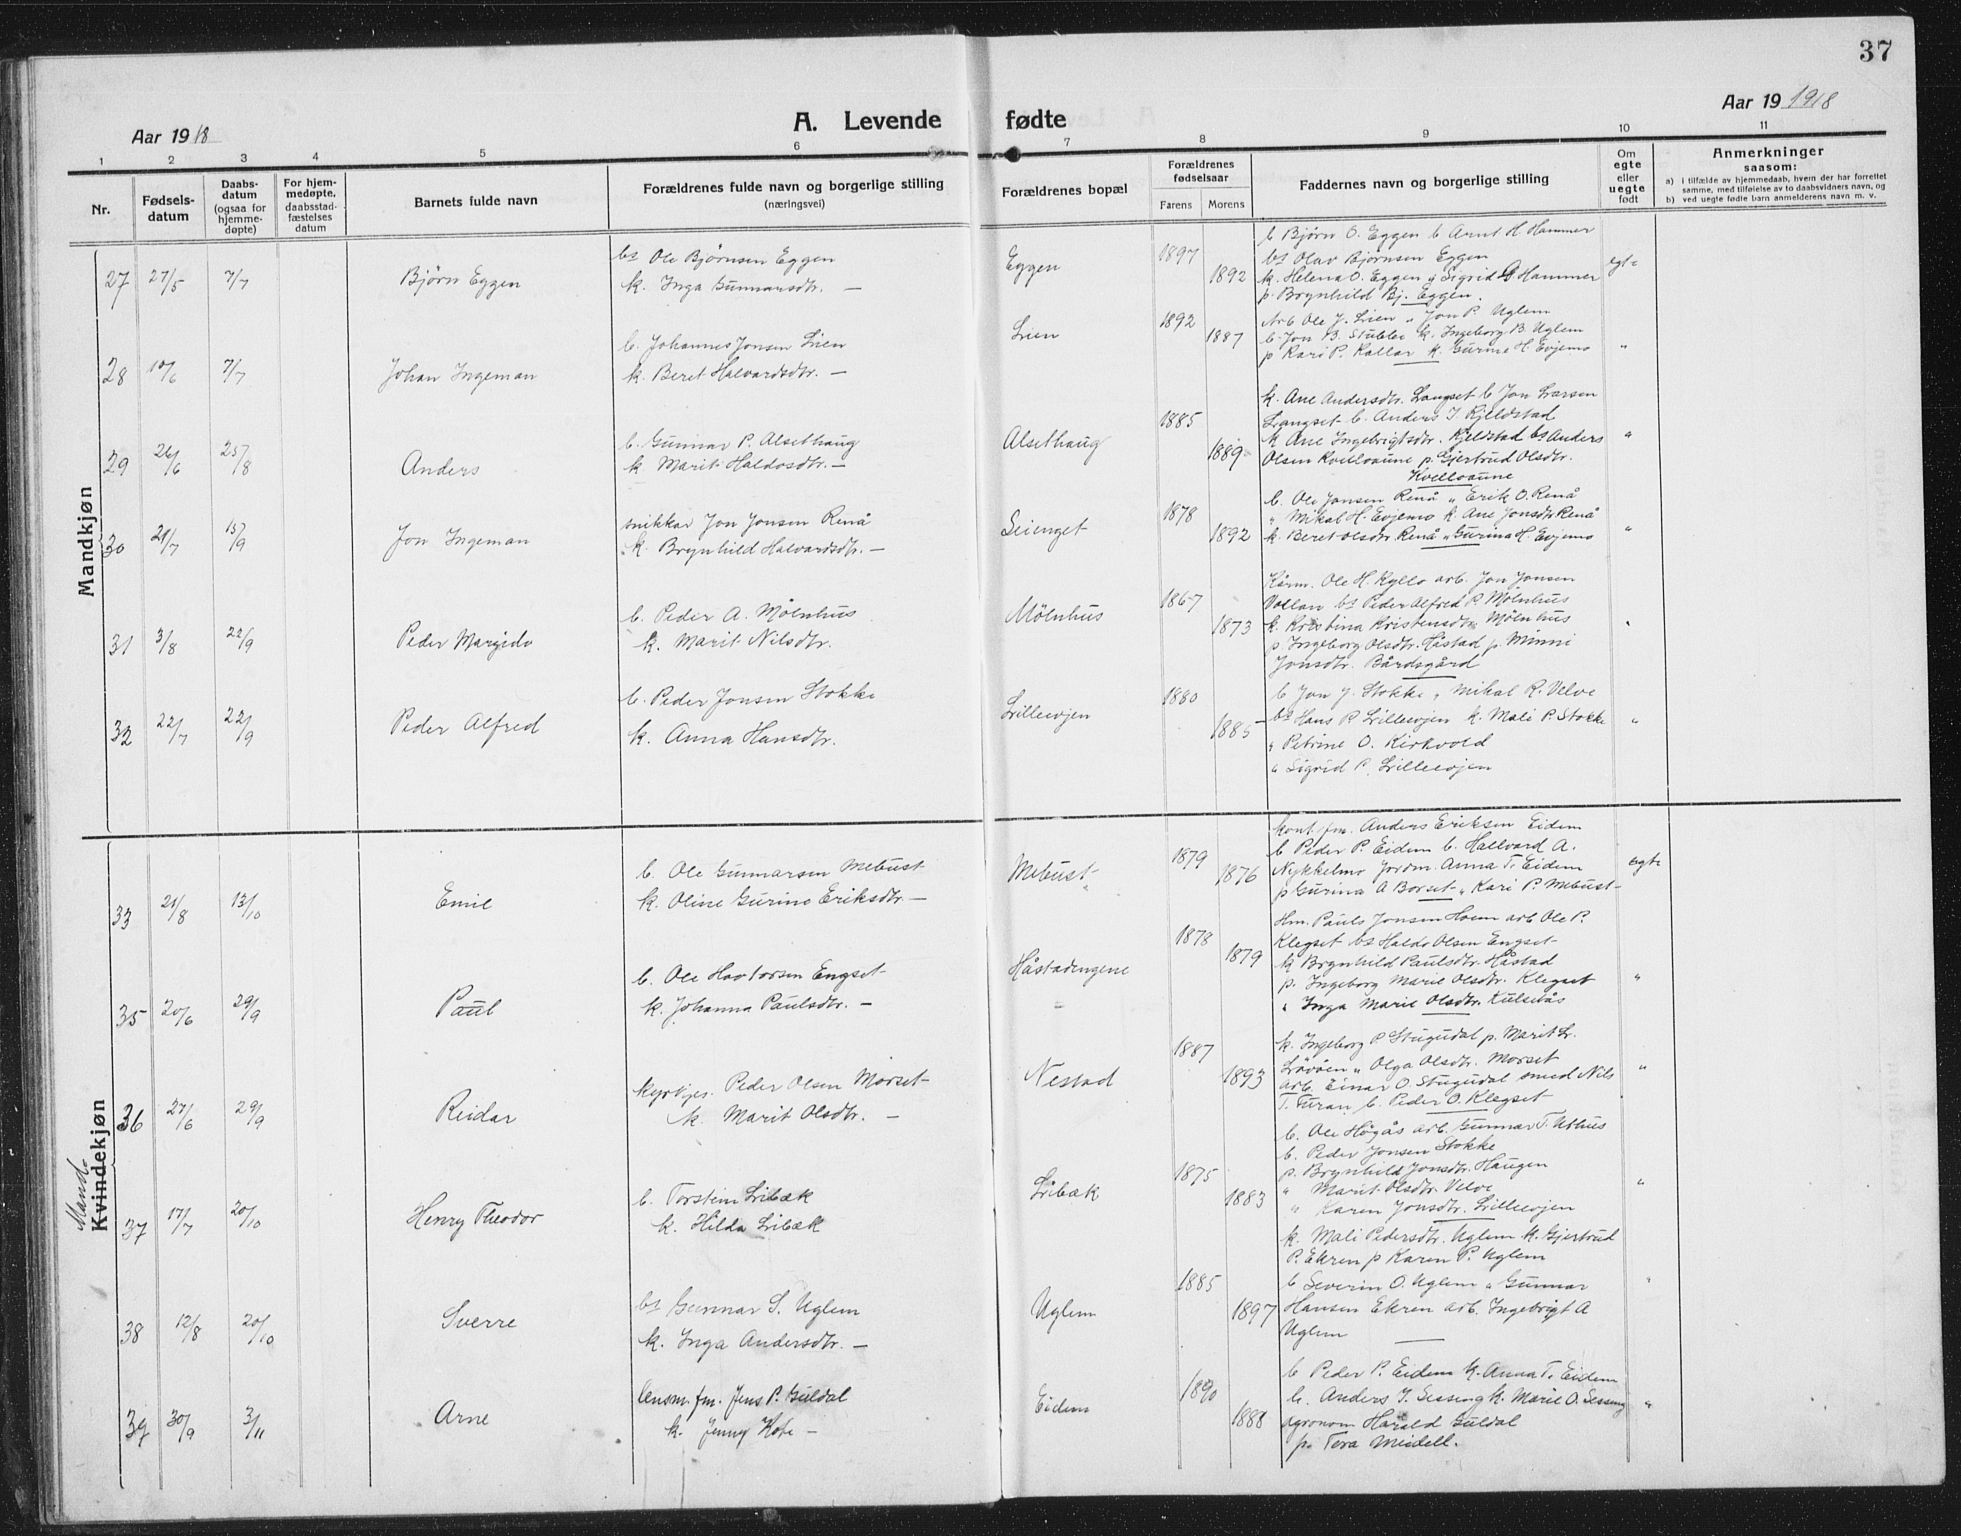 37
Aar 1918
A. Levende fødte
Aar 19 1918
1 2 3 4 5 6 7 8 9 10 11
Nr.
Fødsels-
datum
Daabs-
datum
(ogsaa for
hjemme-
døpte)
For hjem-
medøpte,
daabsstad-
fæstelses
datum
Barnets fulde navn
Forældrenes fulde navn og borgerlige stilling
(næringsvei)
Forældrenes bopæl
Forældrenes
fødselsaar
Farens Morens
Faddernes navn og borgerlige stilling
Om
egte
eller
uegte
født
Anmerkninger
saasom:
a) i tilfælde av hjemmedaab, hvem der har forrettet
samme, med tilføielse av to daabsvidners navn, og
b) ved uegte fødte barn anmelderens navn m. v.
Mandkjøn
27 27/5 7/7 Bjørn Eggen
bs Ole Bjørnsen Eggen
k. Inga Gunnarsdtr. —
Eggen 1897 1892
b Bjørn O. Eggen b Arnt H. Hammer
bs Olav Bjørnsen Eggen
k. Helena O. Eggen " Sigrid G Hammer
p. Brynhild Bj. Eggen.
egte
28 10/6 7/7 Johan Ingeman
b. Johannes Jonsen Lien
k. Beret Halvardsdtr. —
Lien 1892 1887
Arb Ole J. Lien " Jon P. Uglem
b. Jon B. Stubbe k. Ingeborg B. Uglem
p Kari P. Kallar k. Gurine H. Evjemo
"
29 26/6 25/8 Anders
b. Gunnar P. Alsethaug
k. Marit Haldosdtr. —
Alsethaug 1885 1889
k. Ane Andersdtr. Langset b Jon Larsen
Langset b. Anders J. Kjeldstad
k Ane Ingebrigtsdtr. Kjeldstad bs Anders
Olsen Kvelloaune p. Gjertrud Olsdtr.
Kvelloaune
"
30 21/7 15/9 Jon Ingeman
snikkar Jon Jonsen Renå
k. Brynhild Halvardsdtr. —
Seienget 1878 1892
b. Ole Jonsen Renå " Erik O. Renå
" Mikal H. Evjemo k Ane Jonsdtr. Renå
k. Beret Olsdtr. Renå " Gurina H. Evjemo
"
31 3/8 22/9 Peder Margido
b. Peder A. Mölnhus
k. Marit Nilsdtr.
Mölnhus 1867 1873
Ole H. Kyllo arb. Jon Jonsen
Vollan bs Peder Alfred P. Mölnhus
k. Kristina Kristensdtr Mölnhus
p. Ingeborg Olsdtr. Håstad p. Minni
Jonsdtr. Bårdsgård
"
32 22/7 22/9 Peder Alfred
b. Peder Jonsen Stokke
k. Anna Hansdtr.
Lilleevjen 1880 1885
b Jon J. Stokke " Mikal R. Velve
bs Hans P. Lilleevjen k. Mali P. Stokke
" Petrine O. Kirkvold
" Sigrid P. Lilleevjen
"
Mand.
Kvindekjøn
33 21/8 13/10 Emil
b. Ole Gunnarsen Mebust
k. Oline Gurine Eriksdtr. —
Mebust 1879 1876
kont.fm. Anders Eriksen Eidem
b Peder P. Eidem b. Hallvard A.
Nykkelmo Jordm. Anna T. Eidem
p Gurina A Borset " Kari P. Mebust
egte
35 20/6 29/9 Paul
b. Ole Haldorsen Engset
k. Johanna Paulsdtr. —
Håstadengene 1878 1879
Hm. Pauls Jonsen Hoem arb Ole P.
Klegset bs Haldo Olsen Engset
k Brynhild Paulsdtr. Håstad
p. Ingeborg Marie Olsdtr. Klegset
" Inga Marie Olsdtr. Kulsetås
"
36 27/6 29/9 Reidar
kyrkjes. Peder Olsen Morset
k. Marit Olsdtr. —
Nestad 1887 1893
k. Ingeborg P. Stugudal p. Marit L.
Lövöen " Olga Olsdtr. Morset
arb. Einar O. Stugudal smed Nils
T. Furan b. Peder O. Klegset
"
37 17/7 20/10 Henry Theodor
b. Torstein Libæk
k. Hilda Libæk
Libæk 1875 1883
b. Ole Högås arb. Gunnar T. Uthus
b. Peder Jonsen Stokke
p. Brynhild Jonsdtr. Haugen
" Marit Olsdtr. Velve
" Karen Jonsdtr. Lilleevjen
"
38 12/8 20/10 Sverre
bs Gunnar S. Uglem
k. Inga Andersdtr. —
Uglem 1885 1897
k. Mali Pedersdtr. Uglem k. Gjertrud
P. Ekren p Karen P. Uglem
b Severin O. Uglem " Gunnar
Hansen Ekren arb. Ingebrigt A
Uglem
"
39 30/9 3/11 Arne
fm. Jens P. Guldal
k. Jenny —
Eidem 1890 1888
b Peder P. Eidem k. Anna T. Eidem
b. Anders J. Sessing k. Marie O. Sesseng
agronom Harald Guldal
p. Tora Meidell.
"